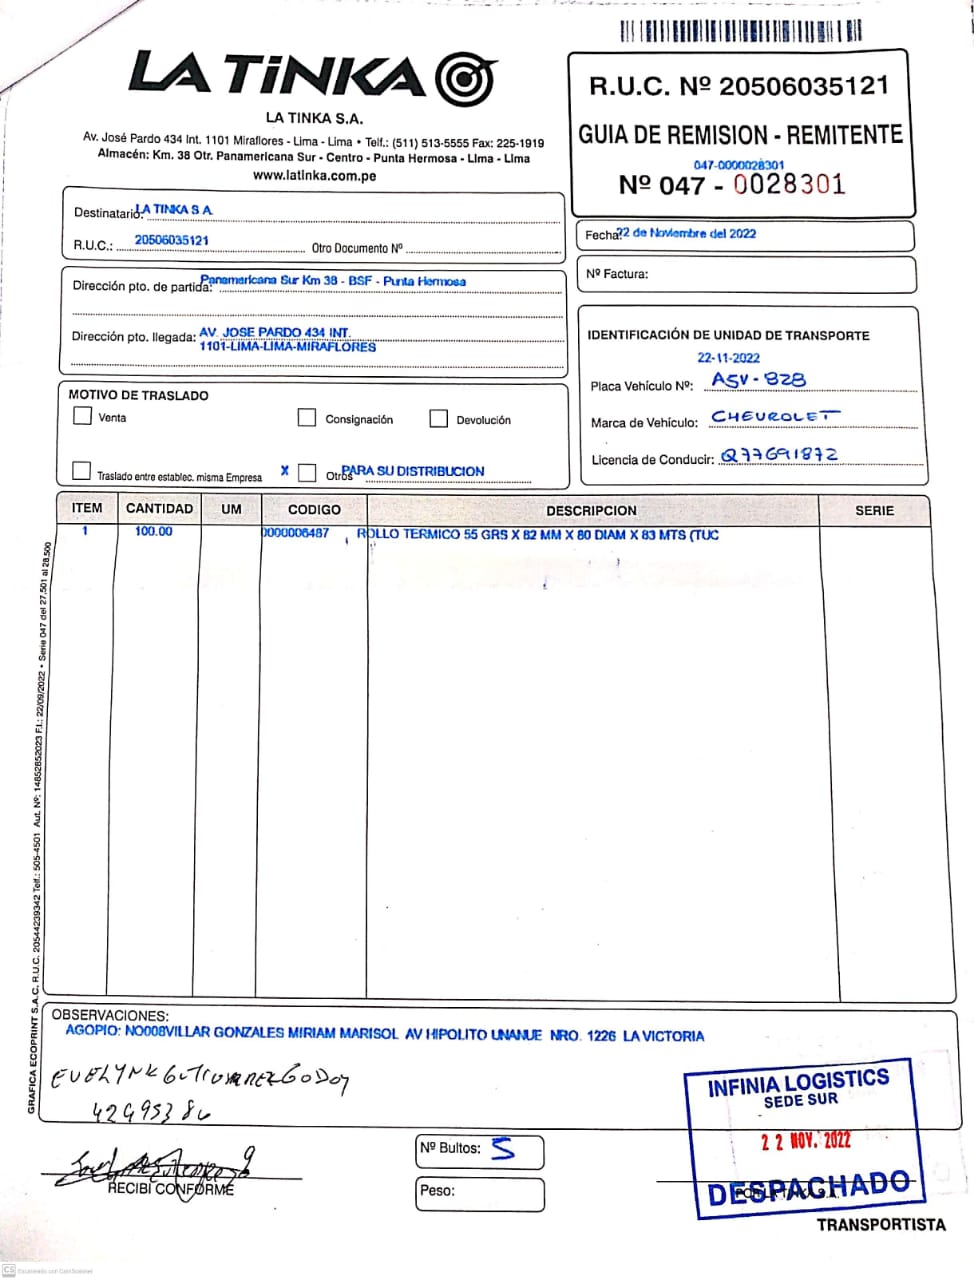 LA TiNKA
LA TINKA S.A.
Av. José Pardo 434 Int. 1101 Miraflores - Lima - Lima • Telf.: (511) 513-5555 Fax: 225-1919
Almacén: Km. 38 Otr. Panamericana Sur - Centro - Punta Hermosa - Lima - Lima
www.latinka.com.pe
R.U.C. Nº 20506035121
GUIA DE REMISION - REMITENTE
047-0000028301
Nº 047 - 0028301
Destinatario: LA TINKA S A
R.U.C.: 20506035121 Otro Documento Nº
Fecha: 22 de Noviembre del 2022
Nº Factura:
Dirección pto. de partida: Panamericana Sur Km 38 - BSF - Punta Hermosa
Dirección pto. llegada: AV. JOSE PARDO 434 INT.
1101-LIMA-LIMA-MIRAFLORES
IDENTIFICACIÓN DE UNIDAD DE TRANSPORTE
22-11-2022
Placa Vehículo Nº: ASV-828
Marca de Vehículo: CHEVROLET
Licencia de Conducir: Q77691872
MOTIVO DE TRASLADO
Venta Consignación Devolución
Traslado entre establec. misma Empresa X Otros PARA SU DISTRIBUCION
ITEM CANTIDAD UM CODIGO DESCRIPCION SERIE
1 100.00 0000006487 ROLLO TERMICO 55 GRS X 82 MM X 80 DIAM X 83 MTS (TUC
GRAFICA ECOPRINT S.A.C. R.U.C. 20544239342 Telf.: 505-4501 Aut. Nº: 14652852023 F.I.: 22/09/2022 • Serie 047 del 27,501 al 28,500
OBSERVACIONES:
AGOPIO: NO008VILLAR GONZALES MIRIAM MARISOL AV HIPOLITO UNANUE NRO. 1226 LA VICTORIA
42495386
INFINIA LOGISTICS
SEDE SUR
22 NOV. 2022
DESPACHADO
Nº Bultos: 5
Peso:
RECIBÍ CONFORME
POR LA TINKA S.A.
TRANSPORTISTA
CS Escaneado con CamScanner